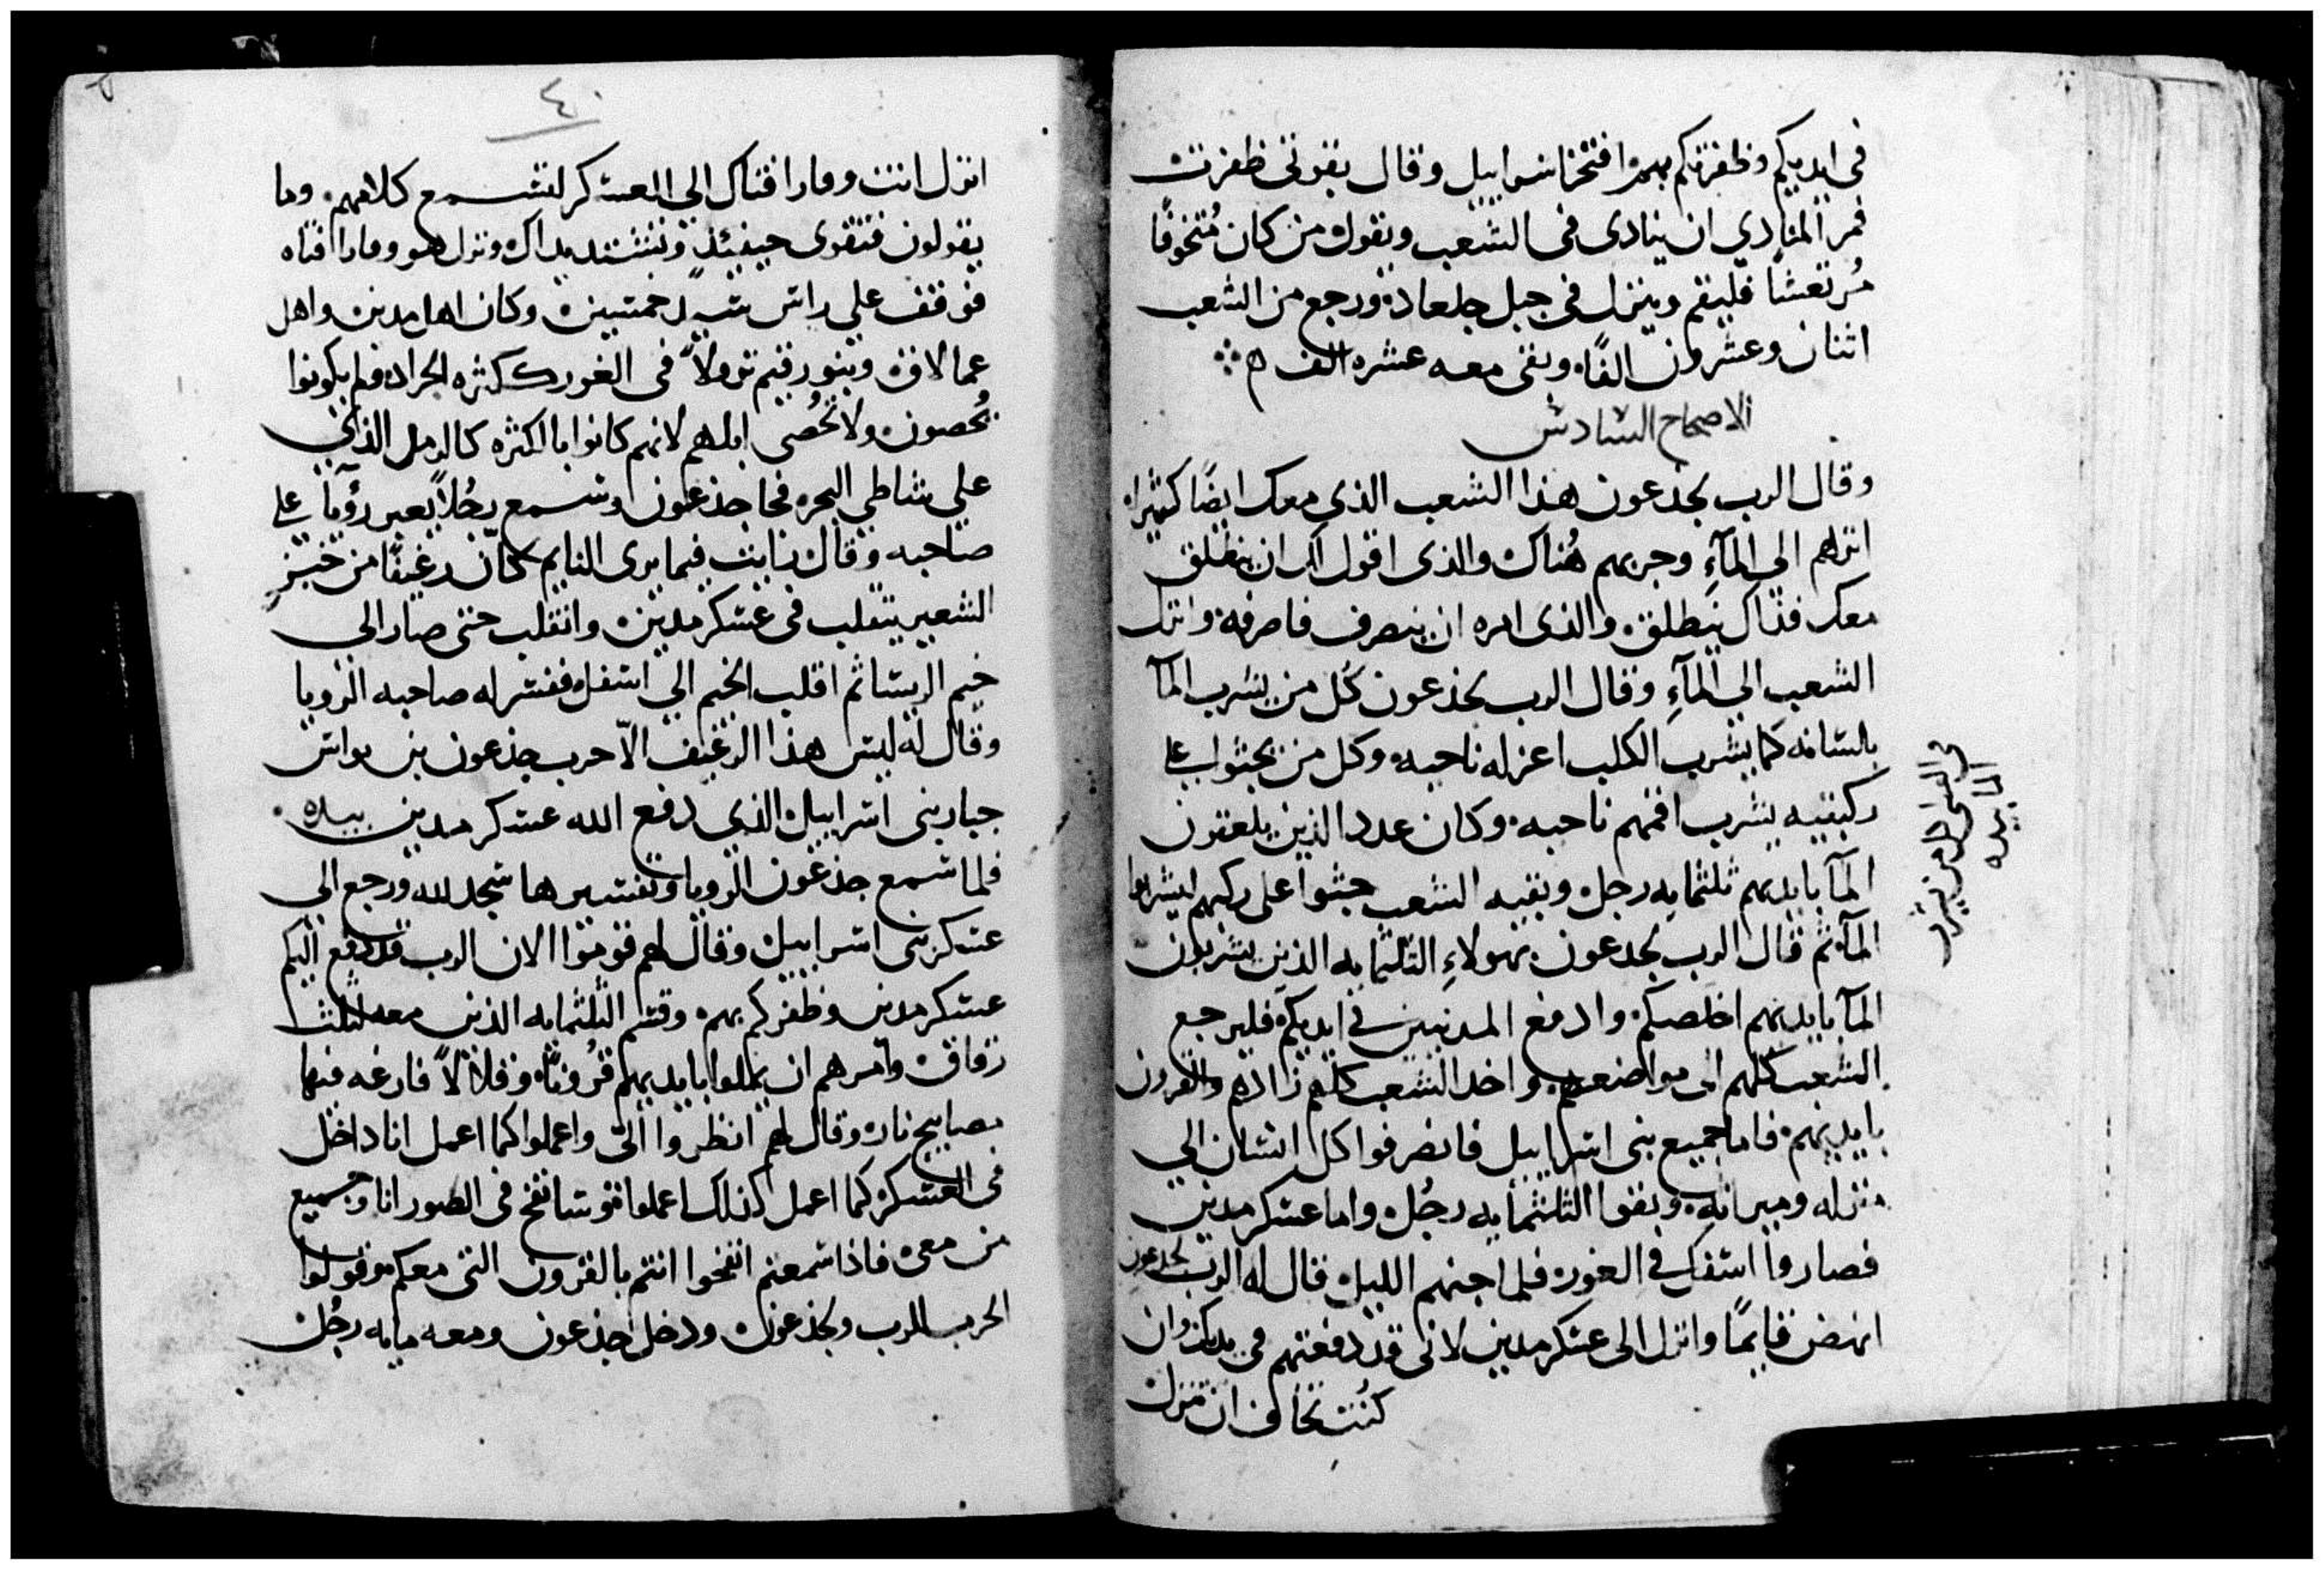 في ايديكم وظفرتكم بهم افتخر اسراييل وقال بقوتى ظفرت
فمر المنادي ان ينادى فى الشعب ويقول من كان متخوفًا
مُرتعشًا فليقم وينزل فى جبل جلعاد ورجع من الشعب
اثنان وعشرون الفًا وبقى معه عشره الف
الاصحاح السادس
وقال الرب لجذعون هذا الشعب الذي معك ايضًا كثيرا
انزلهم الي المآءِ وجربهم هُناك والذى اقول لك ان ينطلق
معك فذاك ينطلق والذى امره ان ينصرف فاصرفه وانزل
الشعب الي المآءِ وقال الرب لجذعون كُل من يشرب المآ
بلسانه كما يشرب الكلب اعزله ناحيه وكل من يجثوا على
ركبتيه يشرب اقمهم ناحيه وكان عدد الذين يلعقون
المآ بايديهم ثلثمايه رجل وبقيه الشعب جثوا على ركبهم ليشربوا
المآ ثم قال الرب لجدعون بهولاءِ الثلثمايه الذين يشربون
المآ بايديهم اخلصكم وادفع المدنيين في ايديكم فليرجع
الشعب كلهم الى مواضعهم واخد الشعب كلهم زادهم والقرون
بايديهم فاما جميع بنى اسراييل فانصرفوا كل انسان الي
منزله وميراثه وبقوا الثلثمايه رجُل واما عسكر مدين
فصاروا اسفل في الغور فلما جنهم الليل قال له الرب لجدعون
انهض قايمًا وانزل الى عسكر مدين لانى قد دفعتهم فى يديك وان
كُنت تخاف ان تنزل
٤٠
انزل انت وفارا فتاك الي العسكر لتسمع كلامهم وما
يقولون فتقوى حينئذٍ وتشتد يداك ونزل هو وفارا فتاه
فوقف علي راس وكان اهل مدين واهل
عمالاق وبنو رقيم نزولاً فى الغور ككثره الجراد ولم يكونوا
يُحصون ولا تُحصى ابلهم لانهم كانوا بالكثره كالرمل الذي
علي شاطي البحر فجا جذعون وسمع رجُلاً يعبر رؤيا على
صاحبه وقال رايت فيما يرى النايم كانّ رغيفًا من خبز
الشعير يتقلب فى عسكر مدين وانقلب حتى صار الى
خيم الريسا ثم اقلب الخيم الي اسفل ففسر له صاحبه الرويا
وقال له ليس هذا الرغيف الاّ حرب جذعون بن يواش
جبار بنى اسراييل الذي دفع الله عسكر مدين بيده
فلما سمع جذعون الرويا وتفسيرها سجد لله ورجع الي
عسكر بنى اسراييل وقال لهم قوموا الان الرب قد دفع اليكم
عسكر مدين وظفركم بهم وقسم الثلثمايه الذين معه ثلث
زقاق وامرهم ان يملوا بايديهم قرُونًا وقلالاً فارغه فيها
مصابيح نار وقال لهم انظروا اليّ واعملوا كما اعمل انا داخل
فى العسكر كما اعمل كذلك اعملوا سانفخ فى الصور انا وجميع
من معى فاذا سمعتم انفخوا انتم بالقرون التى معكم وقولوا
الحرب للرب ولجذعون ودخل جذعون ومعه مايه رجُل